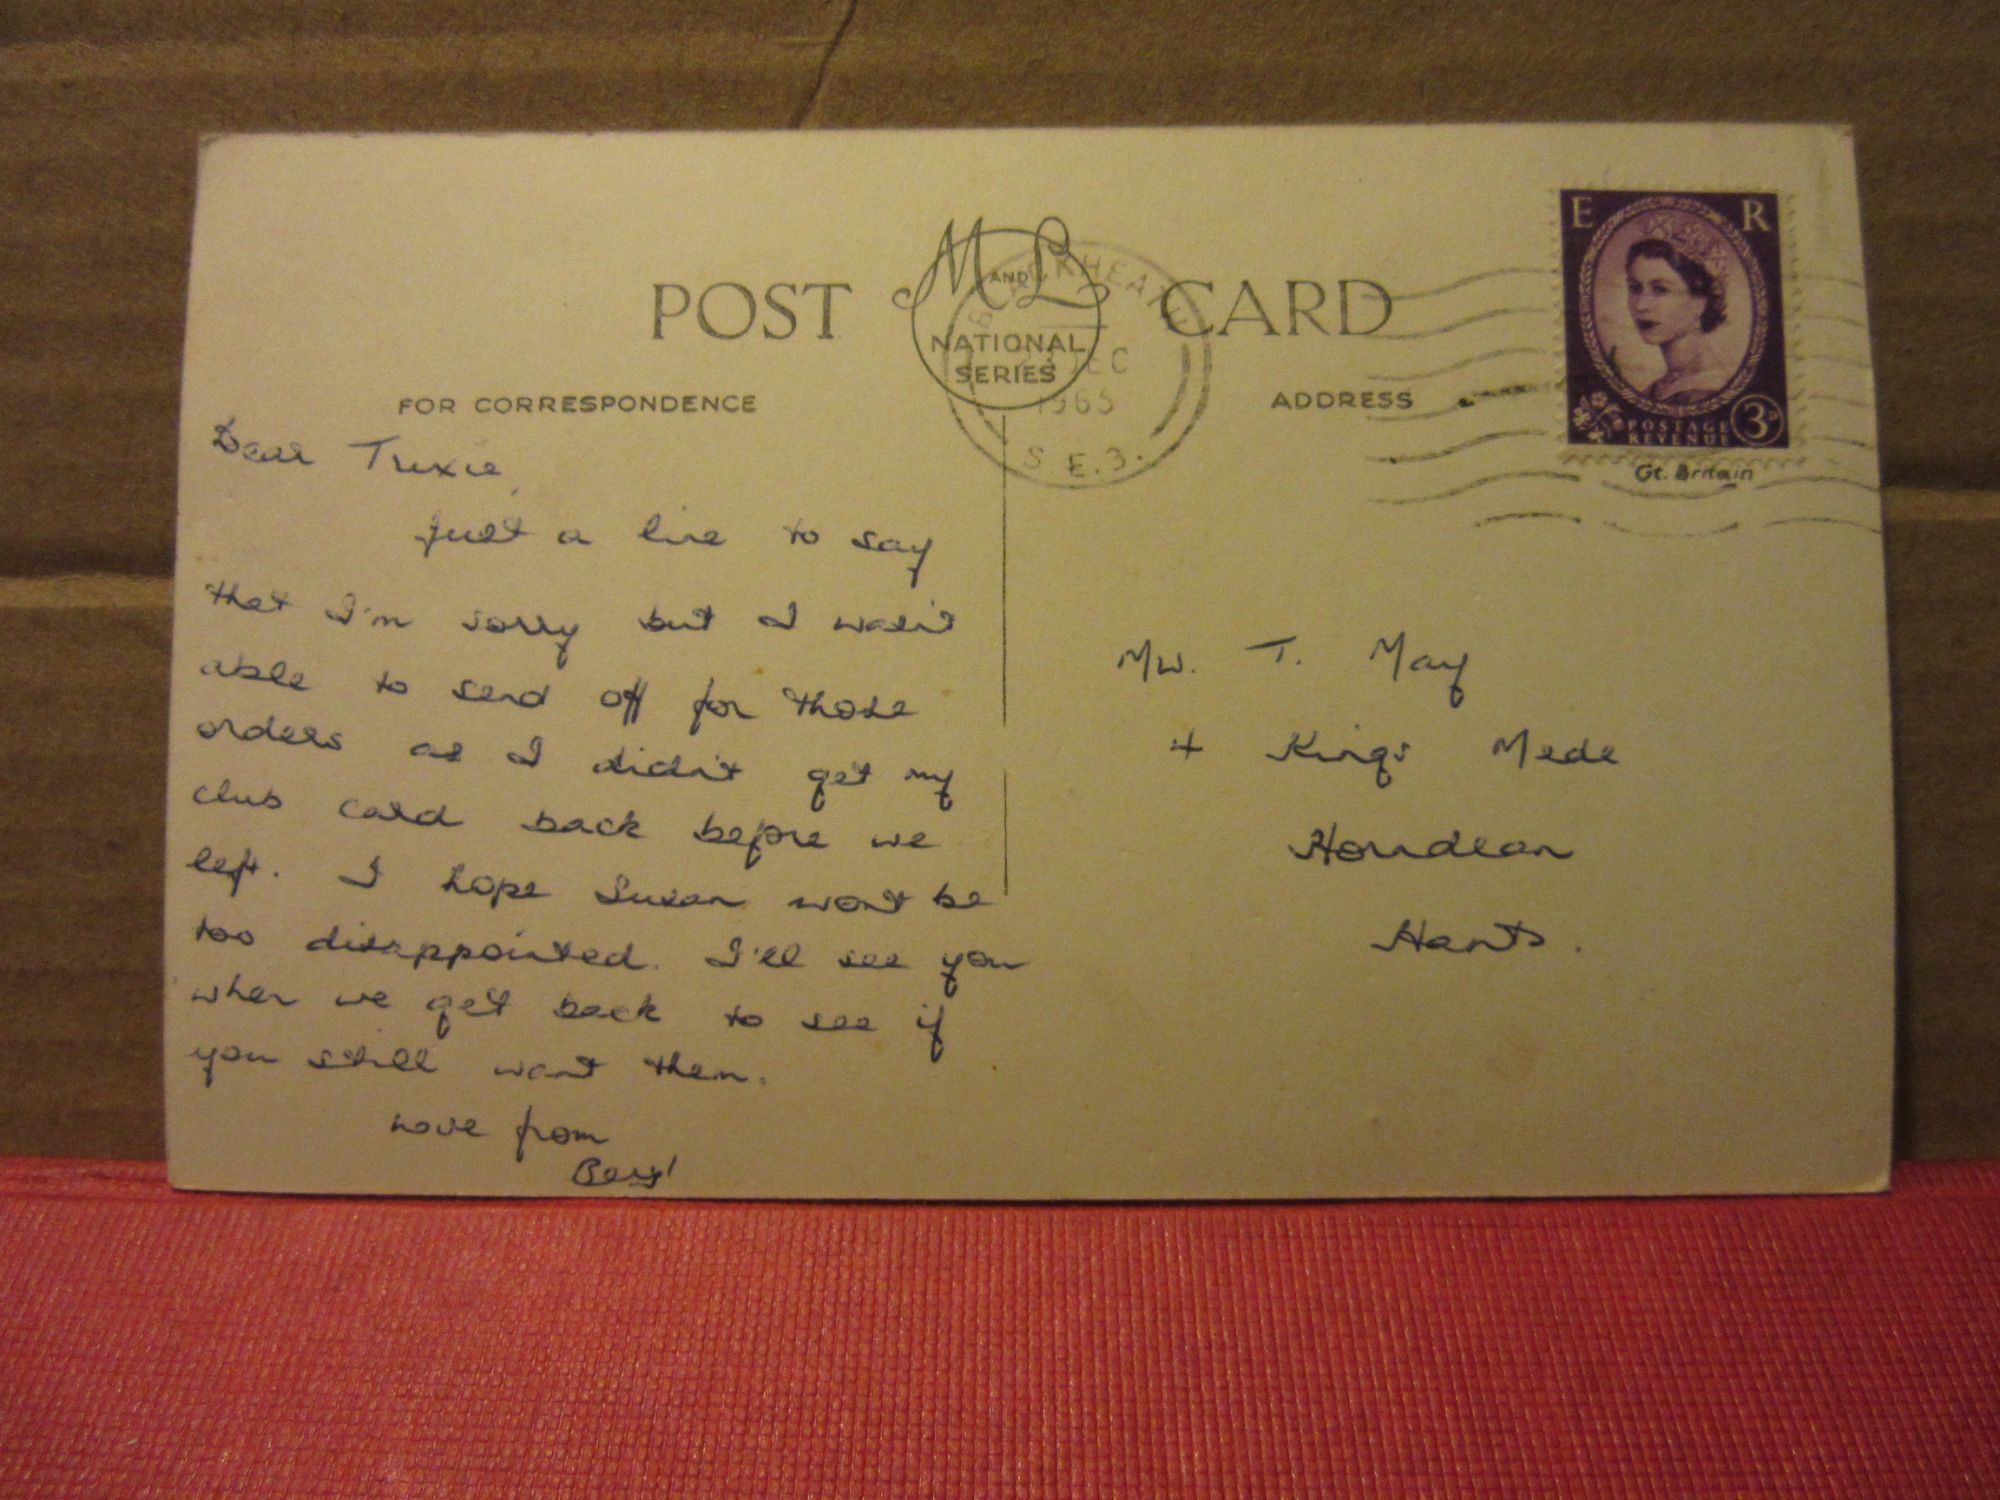 POST CARD
M AND L
NATIONAL
SERIES
BLACKHEATH
DEC
1965
S.E.3.
E R
POSTAGE
REVENUE
3D
Gt. Britain
FOR CORRESPONDENCE
ADDRESS
Dear Trixie,
Just a line to say
that I'm sorry but I wasn't
able to send off for those
orders as I didn't get my
club card back before we
left. I hope Susan wont be
too disappointed. I'll see you
when we get back to see if
you still want them.
Love from
Beryl
T. May
4 Kings Mede
Horndean
Hants.